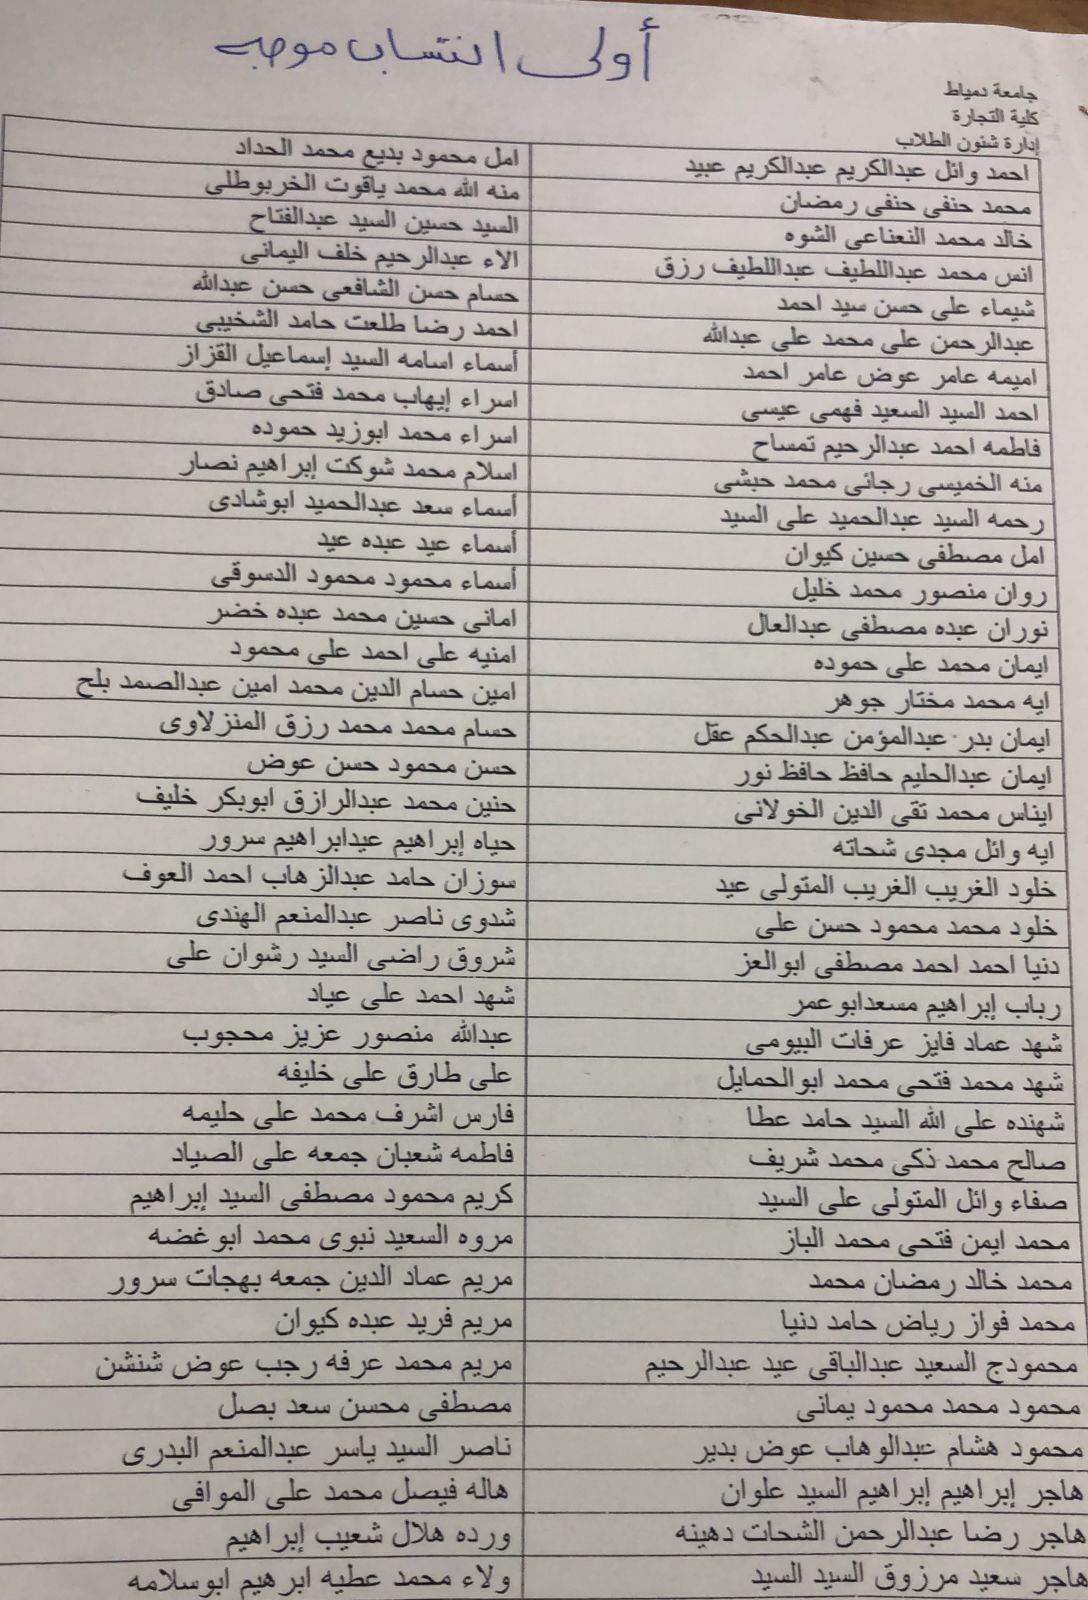 أولى انتساب موجه
جامعة دمياط
كلية التجارة
إدارة شئون الطلاب
احمد وائل عبدالكريم عبدالكريم عبيد
امل محمود بديع محمد الحداد
محمد حنفى حنفى رمضان
منه الله محمد ياقوت الخربوطلى
خالد محمد النعناعى الشوه
السيد حسين السيد عبدالفتاح
انس محمد عبداللطيف عبداللطيف رزق
الاء عبدالرحيم خلف اليمانى
شيماء على حسن سيد احمد
حسام حسن الشافعى حسن عبدالله
عبدالرحمن على محمد على عبدالله
احمد رضا طلعت حامد الشخيبى
اميمه عامر عوض عامر احمد
أسماء اسامه السيد إسماعيل القزاز
احمد السيد السعيد فهمى عيسى
اسراء إيهاب محمد فتحى صادق
فاطمه احمد عبدالرحيم تمساح
اسراء محمد ابوزيد حموده
منه الخميسى رجائى محمد حبشى
اسلام محمد شوكت إبراهيم نصار
رحمه السيد عبدالحميد على السيد
أسماء سعد عبدالحميد ابوشادى
امل مصطفى حسين كيوان
أسماء عيد عبده عيد
روان منصور محمد خليل
أسماء محمود محمود الدسوقى
نوران عبده مصطفى عبدالعال
امانى حسين محمد عبده خضر
ايمان محمد على حموده
امنيه على احمد على محمود
ايه محمد مختار جوهر
امين حسام الدين محمد امين عبدالصمد بلح
ايمان بدر عبدالمؤمن عبدالحكم عقل
حسام محمد محمد رزق المنزلاوى
ايمان عبدالحليم حافظ حافظ نور
حسن محمود حسن عوض
ايناس محمد تقى الدين الخولانى
حنين محمد عبدالرازق ابوبكر خليف
ايه وائل مجدى شحاته
حياه إبراهيم عيدابراهيم سرور
خلود الغريب الغريب المتولى عيد
سوزان حامد عبدالزهاب احمد العوف
خلود محمد محمود حسن على
شدوى ناصر عبدالمنعم الهندى
دنيا احمد احمد مصطفى ابوالعز
شروق راضى السيد رشوان على
رباب إبراهيم مسعدابوعمر
شهد احمد على عياد
شهد عماد فايز عرفات البيومى
عبدالله منصور عزيز محجوب
شهد محمد فتحى محمد ابوالحمايل
على طارق على خليفه
شهنده على الله السيد حامد عطا
فارس اشرف محمد على حليمه
صالح محمد ذكى محمد شريف
فاطمه شعبان جمعه على الصياد
صفاء وائل المتولى على السيد
كريم محمود مصطفى السيد إبراهيم
محمد ايمن فتحى محمد الباز
مروه السعيد نبوى محمد ابوغضه
محمد خالد رمضان محمد
مريم عماد الدين جمعه بهجات سرور
محمد فواز رياض حامد دنيا
مريم فريد عبده كيوان
محمودج السعيد عبدالباقى عيد عبدالرحيم
مريم محمد عرفه رجب عوض شنشن
محمود محمد محمود يمانى
مصطفى محسن سعد بصل
محمود هشام عبدالوهاب عوض بدير
ناصر السيد ياسر عبدالمنعم البدرى
هاجر إبراهيم إبراهيم السيد علوان
هاله فيصل محمد على الموافى
هاجر رضا عبدالرحمن الشحات دهينه
ورده هلال شعيب إبراهيم
هاجر سعيد مرزوق السيد السيد
ولاء محمد عطيه ابرهيم ابوسلامه